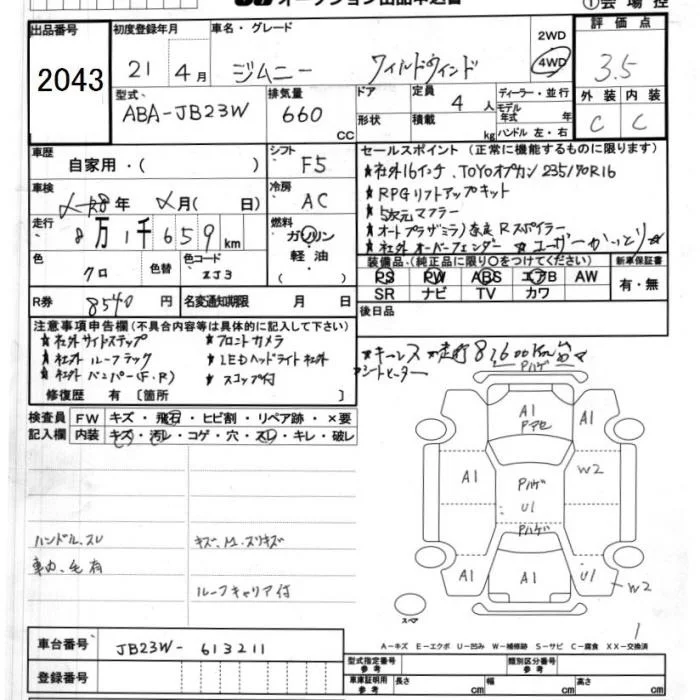 オークション出品申込書
①会場控
出品番号 2043
初度登録年月 21 4月
車名・グレード ジムニー ワイルドウインド
2WD
4WD
評価点 3.5
型式 ABA-JB23W
排気量 660 CC
ドア
形状
定員 4人
積載 kg
ディーラー・並行
モデル年式 年
ハンドル 左・右
外装 内装
C C
車歴 自家用・( )
シフト F5
車検 年 月( 日)
冷房 AC
走行 8万1千659km
燃料 ガソリン
軽油
( ・ )
色 クロ
色替
色コード ZJ3
R券 8540円
名変通知期限 月 日
セールスポイント(正常に機能するものに限ります)
★社外16インチ、TOYOオプカン 235/70R16
★RPGリフトアップキット
★5次元マフラー
★オートプラザミラノ R.スポイラー
★社外オーバーフェンダー ★ユーザーかっとり★
装備品(純正品に限り○をつけてください)
新車保証書
PS PW ABS エアB AW
SR ナビ TV カワ
有・無
後日品
注意事項申告欄(不具合内容等は具体的に記入して下さい)
★社外サイドステップ ★フロントカメラ
★社外ルーフラック ★LEDヘッドライト社外
★社外バンパー(F.R) ★スコップ付
修復歴 有 [箇所 ]
★キーレス 走行81,600km台
シートヒーター
検査員記入欄
FW キズ・飛石・ヒビ割・リペア跡・×要
内装 キズ・汚レ・コゲ・穴・スレ・キレ・破レ
ハンドル、スレ キズ、M、スリキズ
車内、毛有
ルーフキャリア付
Pハゲ
A1
Pアセ
A1
Pハゲ
W2
U1
Pハゲ
A1 A1 U1
W2
スペア
1
A-キズ E-エクボ U-凹み W-補修跡 S-サビ C-腐食 XX-交換済
車台番号 JB23W-613211
登録番号
型式指定番号 参考
類別区分番号 参考
車庫証明用 参考 長さ cm 幅 cm 高さ cm